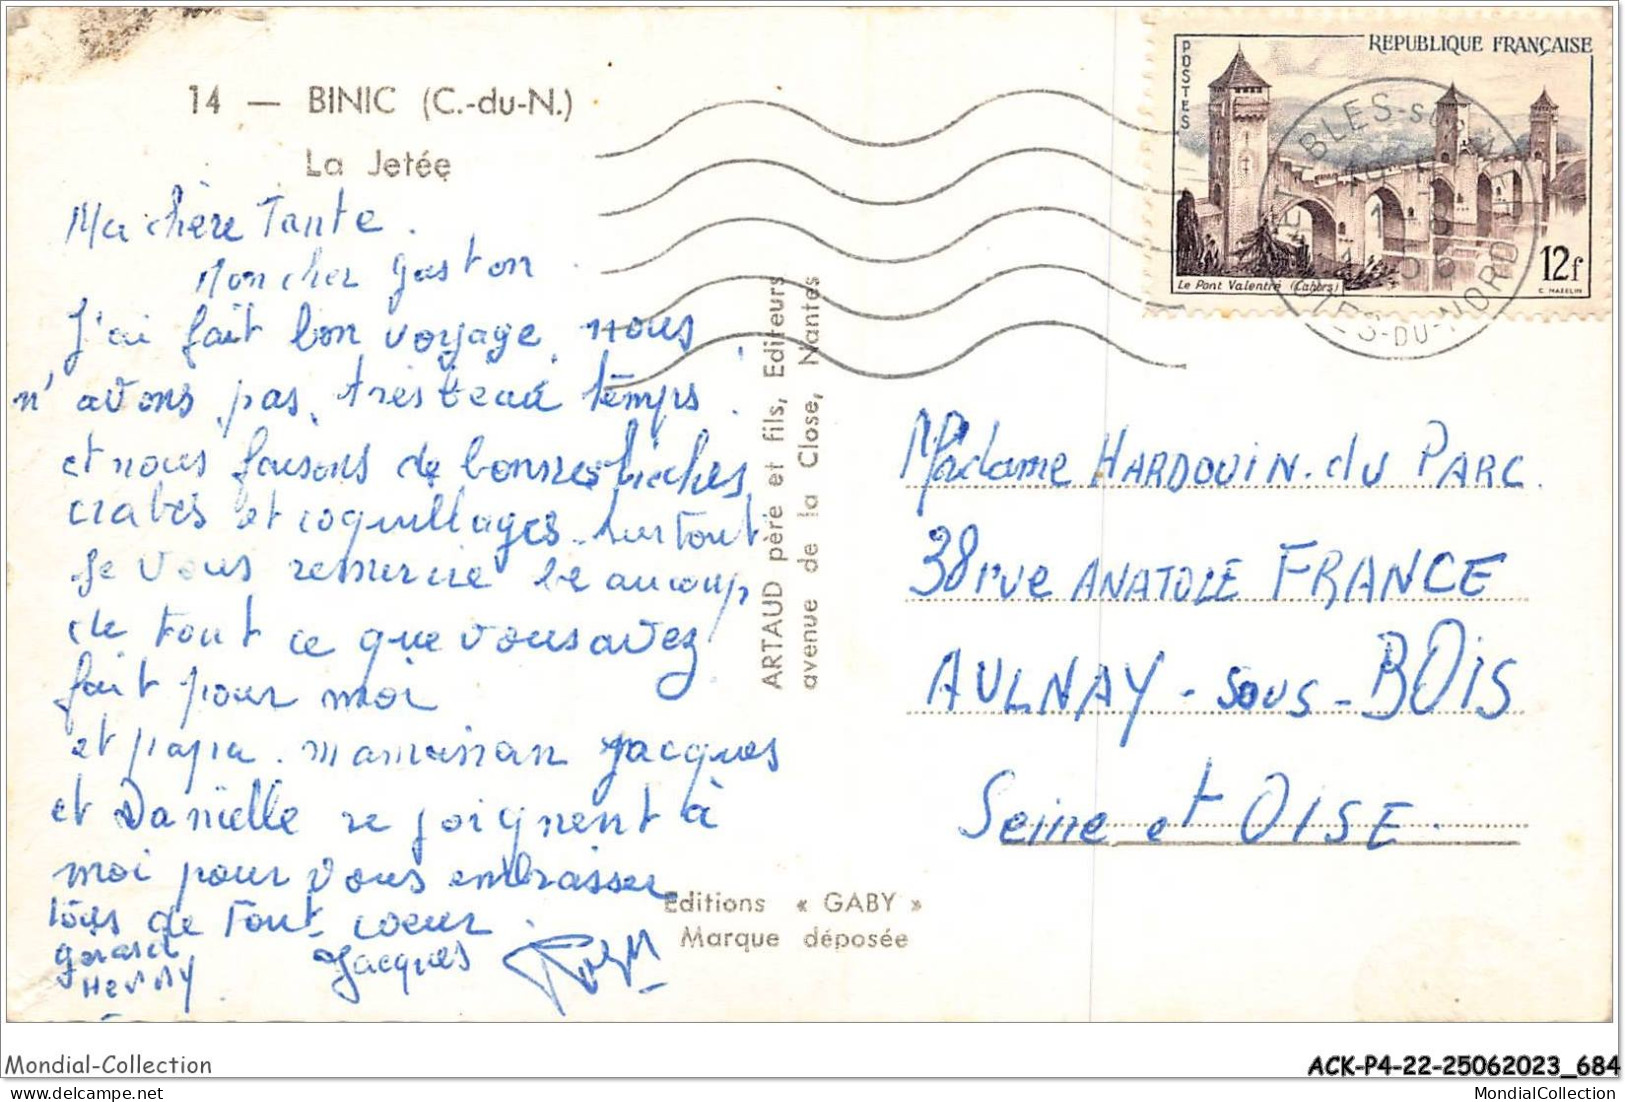 14 — BINIC (C.-du-N.)
La Jetée
Ma chère Tante.
Moncher gaston.
J'ai fait bon voyage, nous
n'avons pas très beau temps.
et nous faisons de bonnes pêches,
crabes et coquillages. surtout
je vous remercie beaucoup
de tout ce que vous avez
fait pour moi
et papa. maman Jacques
et Danielle se joignent à
moi pour vous embrasser
tous de tout coeur.
gérard
Jacques
ARTAUD père et fils, Editeurs
avenue de la Close, Nantes
Editions « GABY »
Marque déposée
POSTES
REPUBLIQUE FRANÇAISE
Le Pont Valentré (Cahors)
12f
C. MAZELIN
ETABLES-sur-MER
COTES-DU-NORD
Madame HARDOUIN.du PARC.
38 rue ANATOLE FRANCE
AULNAY-sous-BOIS
Seine et OISE.
Mondial-Collection
ACK-P4-22-25062023_684
MondialCollection